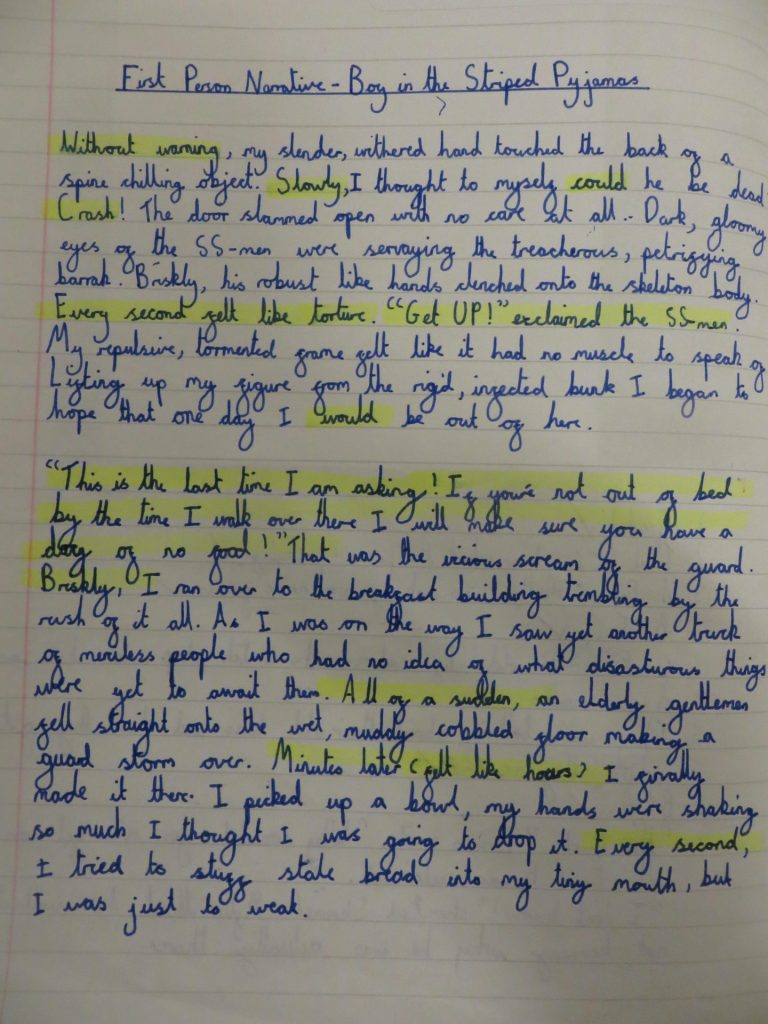 First Person Narrative - Boy in the Striped Pyjamas
Without warning, my slender, withered hand touched the back of a
spine chilling object. Slowly, I thought to myself could he be dead
Crash! The door slammed open with no care at all.. Dark, gloomy
eyes of the SS-men were servaying the treacherous, petrifying
barrak. Briskly, his robust like hands clenched onto the skeleton body.
Every second felt like torture. "Get UP!" exclaimed the SS-men.
My repulsive, tormented frame felt like it had no muscle to speak of
Lifting up my figure from the rigid, infected bunk I began to
hope that one day I would be out of here.
"This is the last time I am asking! If you're not out of bed
by the time I walk over there I will make sure you have a
day of no food!" That was the vicious scream of the guard.
Briskly, I ran over to the breakfast building trembling by the
rush of it all. As I was on the way I saw yet another truck
of meniless people who had no idea of what disasturous things
were yet to await them. All of a sudden, an elderly gentlemen
fell straight onto the wet, muddy cobbled floor making a
guard storm over. Minutes later (felt like hours) I finally
made it there. I picked up a bowl, my hands were shaking
so much I thought I was going to drop it. Every second,
I tried to stuff stale bread into my tiny mouth, but
I was just to weak.